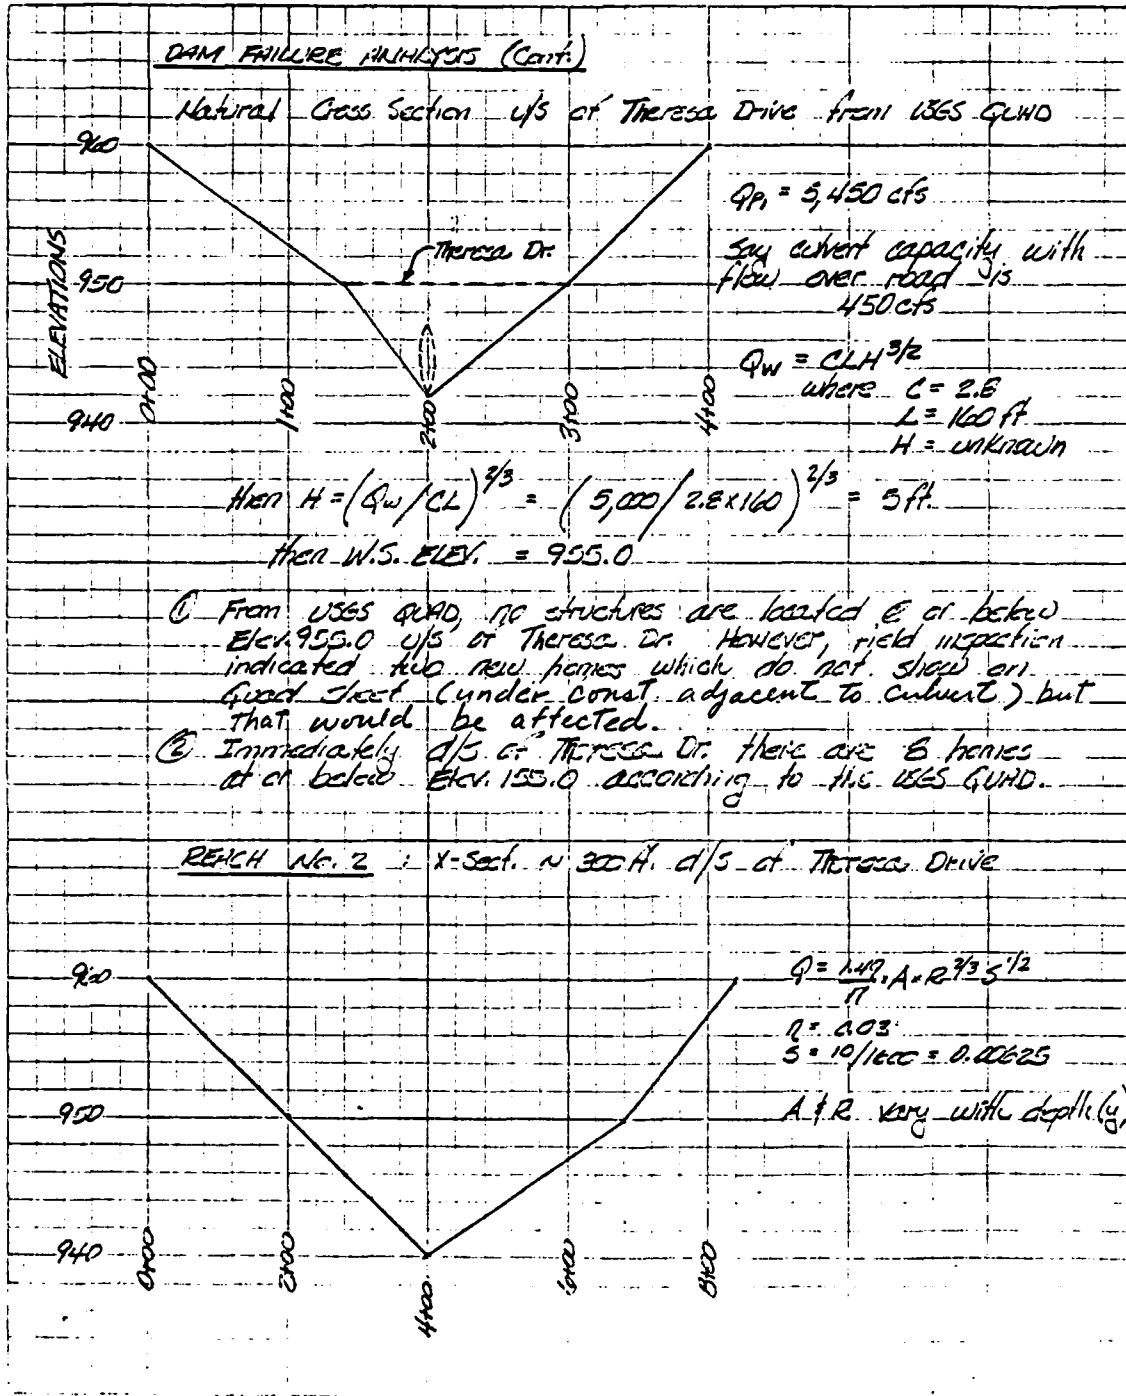 DAM FAILURE ANALYSIS (Cont.)
Natural Cross Section u/s of Theresa Drive from USGS QUAD
960
Qp₁ = 5,450 cfs
Theresa Dr.
say culvert capacity with
flow over road is
450 cfs
ELEVATIONS
950
Qw = CLH^3/2
where C = 2.8
L = 160 ft
H = unknown
940
0+00
1+00
2+00
3+00
4+00
then H = (Qw/CL)^2/3 = (5,000/2.8x160)^2/3 = 5 ft.
then W.S. ELEV. = 955.0
① From USGS QUAD, no structures are located @ or below
Elev. 955.0 u/s of Theresa Dr. However, field inspection
indicated two new homes which do not show on
Quad sheet (under const. adjacent to culvert) but
that would be affected.
② Immediately d/s of Theresa Dr. there are 8 homes
at or below Elev. 155.0 according to the USGS QUAD.
REACH No. 2 : X-Sect. ~ 300 ft. d/s of Theresa Drive
960
Q = 1.49/n · A × R^2/3 S^1/2
n = 0.03
S = 10/1600 = 0.00625
950
A & R vary with depth (y)
940
0+00
2+00
4+00
6+00
8+00